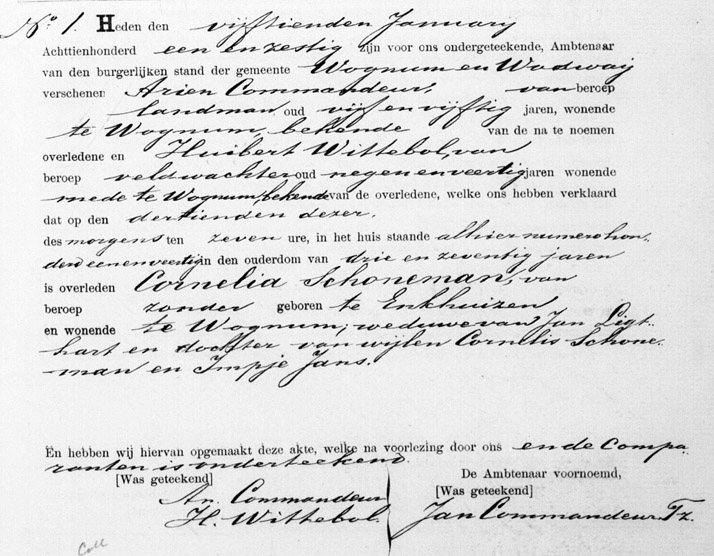 No. 1. Heden den vijftienden January
Achttienhonderd een en zestig zijn voor ons ondergeteekende, Ambtenaar
van den burgerlijken stand der gemeente Wognum en Wadway
verschenen Arien Commandeur, van beroep
landman oud vijf en vijftig jaren, wonende
te Wognum, bekende van de na te noemen
overledene en Huibert Wittebol, van
beroep veldwachter oud negen en veertig jaren wonende
mede te Wognum, bekende van de overledene, welke ons hebben verklaard
dat op den dertienden dezer,
des morgens ten zeven ure, in het huis staande alhier numero hon-
derd een en veertig in den ouderdom van drie en zeventig jaren
is overleden Cornelia Schoneman, van
beroep zonder geboren te Enkhuizen
en wonende te Wognum, weduwe van Jan Ligt-
hart en dochter van wijlen Cornelis Schone-
man en Impje Jans.
En hebben wij hiervan opgemaakt deze akte, welke na voorlezing door ons en de Compa-
ranten is onderteekend.
[Was geteekend]
An. Commandeur
H. Wittebol.
De Ambtenaar voornoemd,
[Was geteekend]
Jan Commandeur Tz.
Coll